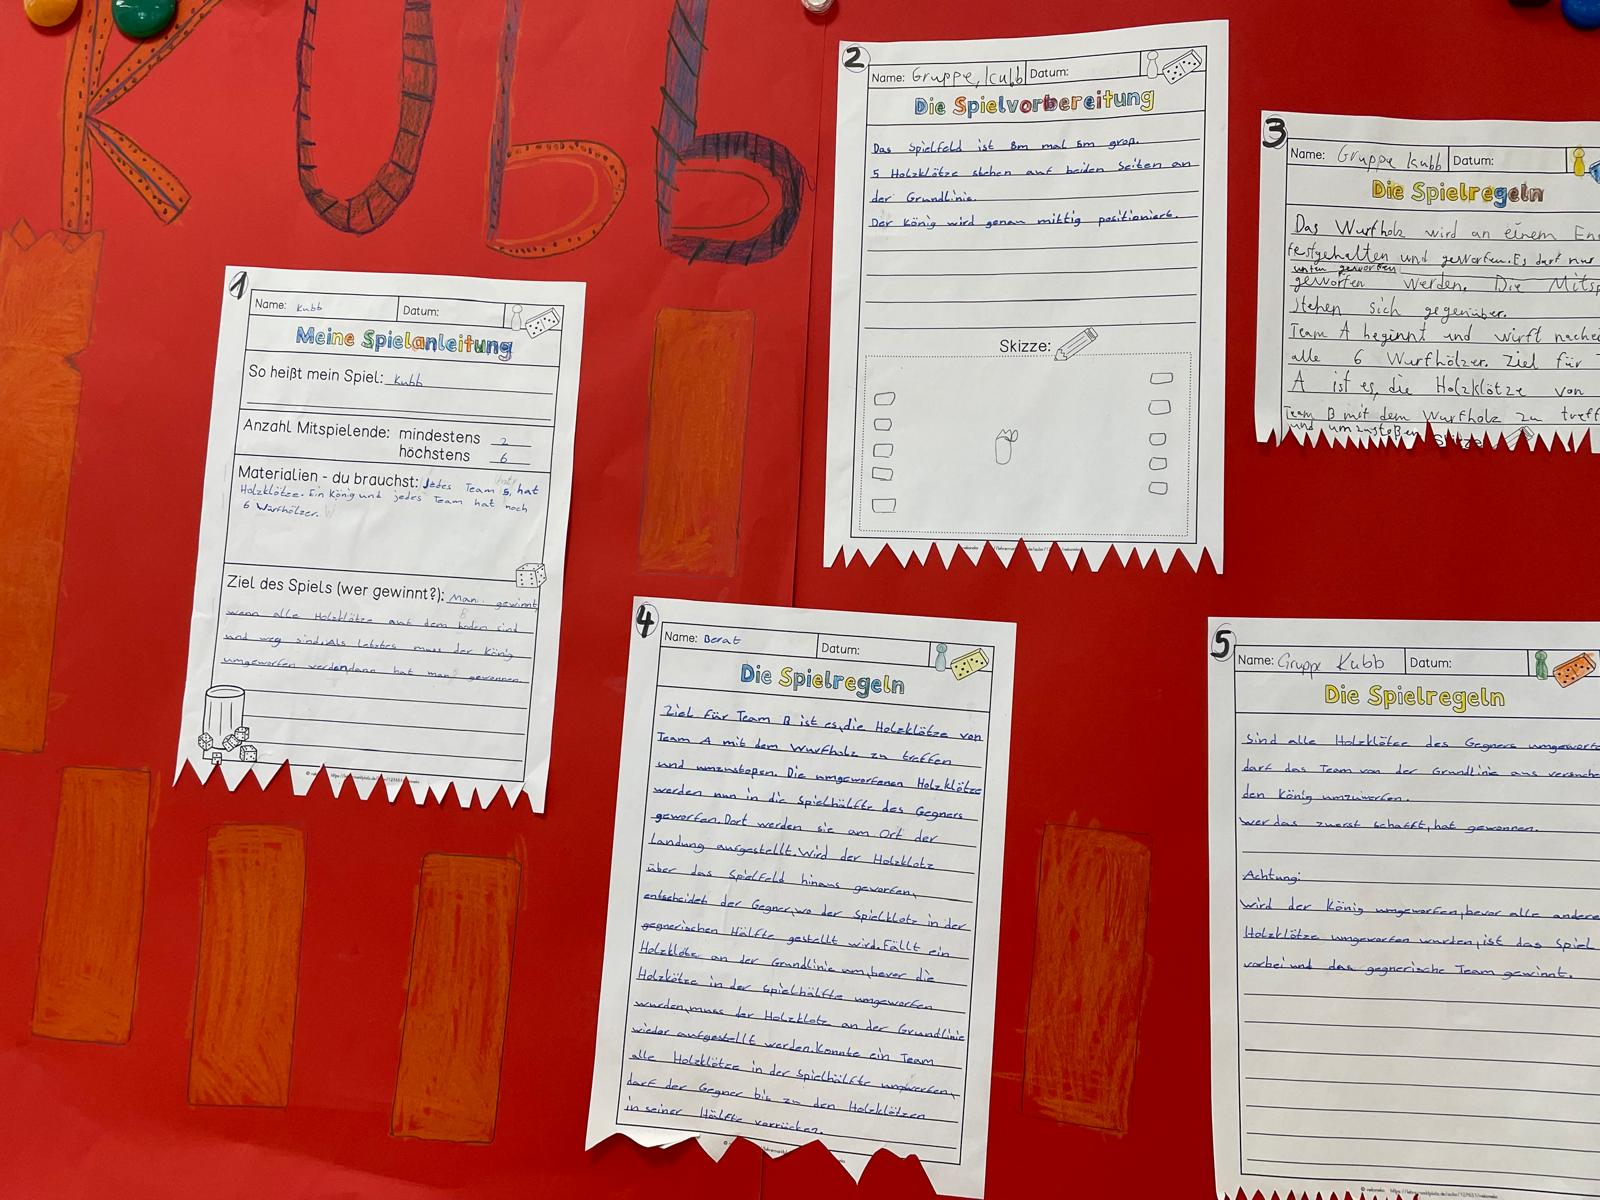 KUbb
1
Name: Kubb Datum:
Meine Spielanleitung
So heißt mein Spiel: Kubb
Anzahl Mitspielende: mindestens 2
höchstens 6
Materialien - du brauchst: Jedes Team 5, hat
Holzklötze. Ein König und jedes Team hat noch
6 Wurfhölzer.
Ziel des Spiels (wer gewinnt?): Man gewinnt,
wenn alle Holzklötze auf dem boden sind
und weg sind. Als letztes muss der König
umgeworfen werden, dann hat man gewonnen.
2
Name: Gruppe, kubb Datum:
Die Spielvorbereitung
Das Spielfeld ist 8m mal 5m groß.
5 Holzklötze stehen auf beiden Seiten an
der Grundlinie.
Der König wird genau mittig positioniert.
Skizze:
3
Name: Gruppe kubb Datum:
Die Spielregeln
Das Wurfholz wird an einem
festgehalten und geworfen. Es darf nur
unten geworfen
geworfen werden. Die
stehen sich gegenüber.
Team A beginnt und wirft
alle 6 Wurfhölzer. Ziel für
A ist es, die Holzklötze von
Team B mit dem Wurfholz zu
und umzustoßen
Skizze
4
Name: Berat Datum:
Die Spielregeln
Ziel für Team B ist es, die Holzklötze von
Team A mit dem Wurfholz zu treffen
und umzustopen. Die umgeworfenen Holzklötze
werden nun in die Spielhälfte des Gegners
geworfen. Dort werden sie am Ort der
Landung aufgestellt. Wird der Holzklotz
über das Spielfeld hinaus geworfen,
entscheidet der Gegner, wo der Spielklotz in der
gegnerischen Hälfte gestellt wird. Fällt ein
Holzklotz an der Grundlinie um, bevor die
Holzkötze in der Spielhälfte umgeworfen
wurden, muss der Holzklotz an der Grundlinie
wieder aufgestellt werden. Konnte ein Team
alle Holzklötze in der Spielhälfte umwerfen,
darf der Gegner bis zu den Holzklötzen
in seiner Hälfte vorrücken.
5
Name: Gruppe Kubb Datum:
Die Spielregeln
Sind alle Holzklötze des Gegners
darf das Team von der Grundlinie aus
den König umzuwerfen.
Wer das zuerst schafft, hat gewonnen.
Achtung:
Wird der König umgeworfen, bevor alle
Holzklötze umgeworfen wurden, ist das Spiel
vorbei und das gegnerische Team gewinnt.